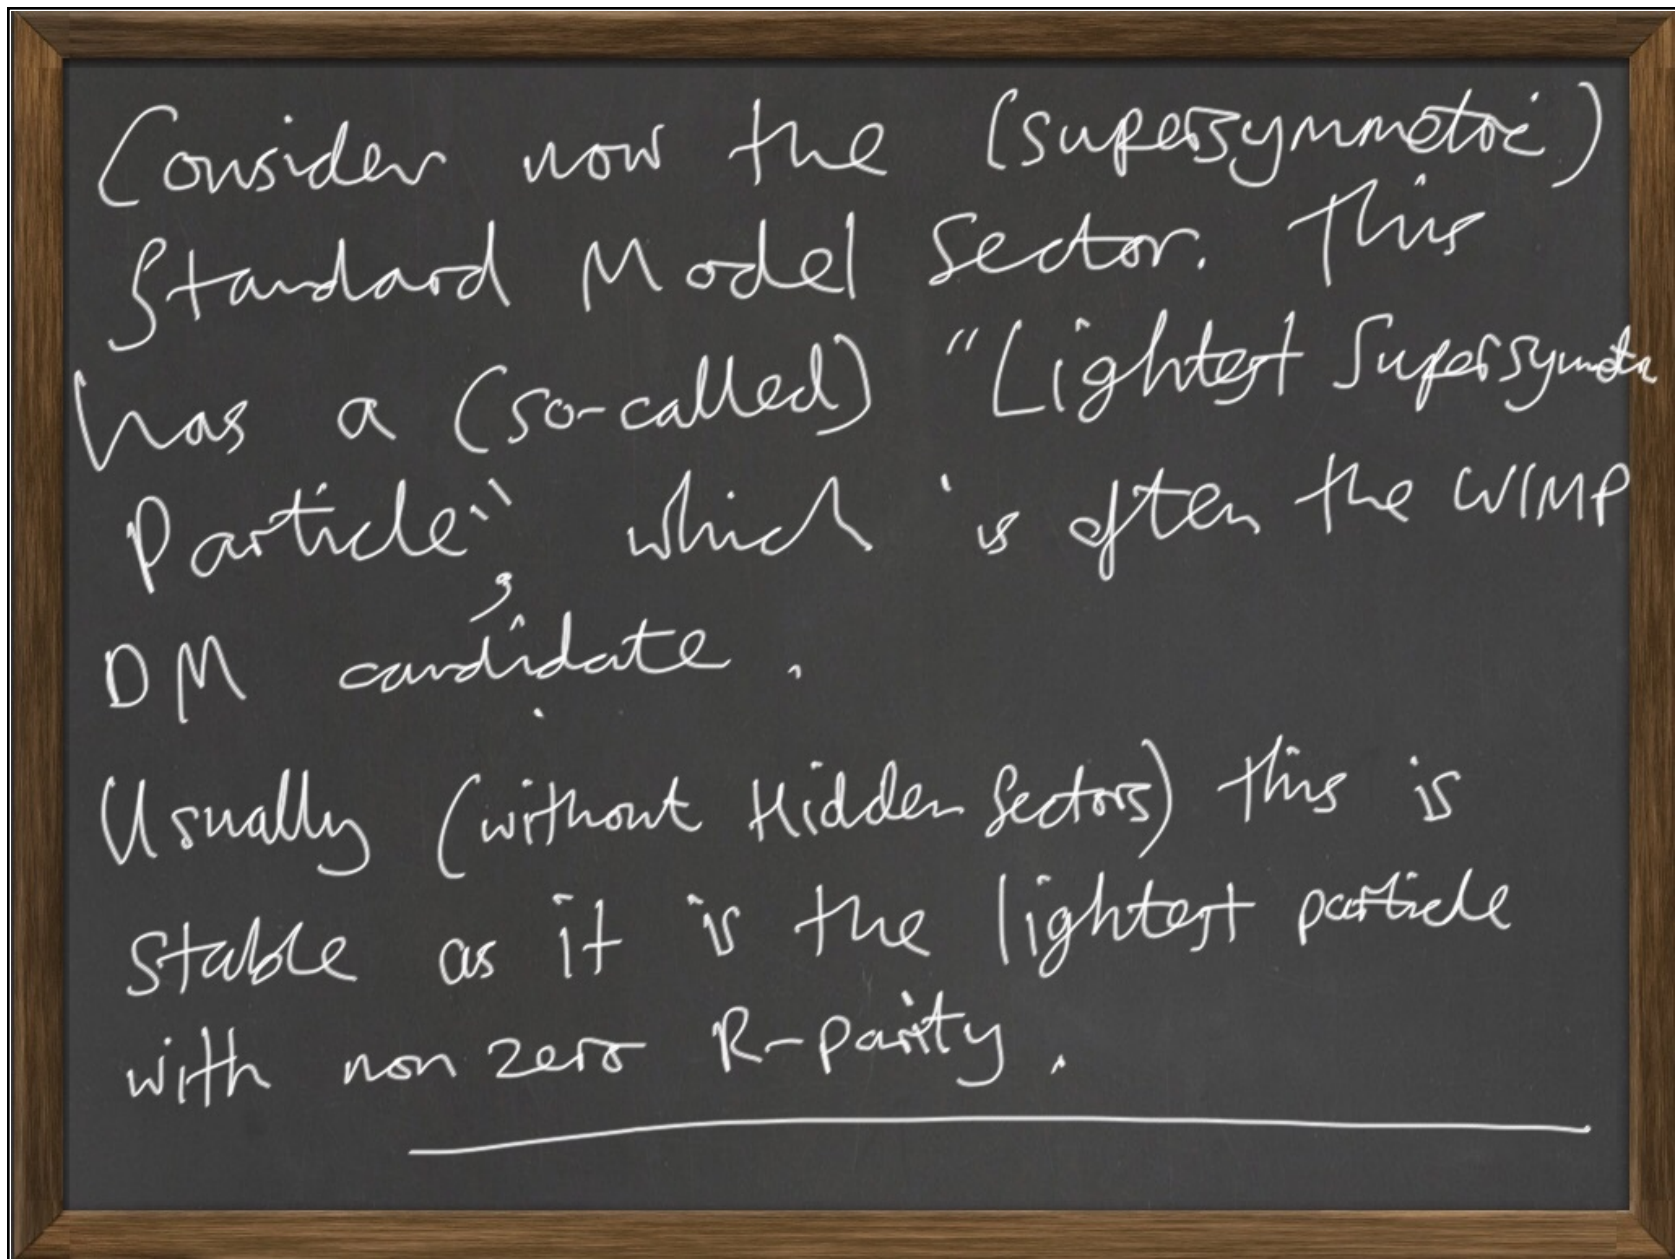 Consider now the (supersymmetric)
Standard Model Sector. This
has a (so-called) "Lightest Supersymmetric
Particle", which is often the WIMP
DM candidate.
Usually (without Hidden Sectors) this is
stable as it is the lightest particle
with non zero R-parity.